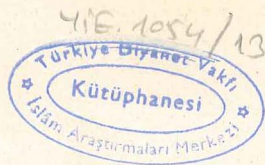 YİE. 1054/13
Türkiye Diyanet Vakfı
Kütüphanesi
İslâm Araştırmaları Merkezi